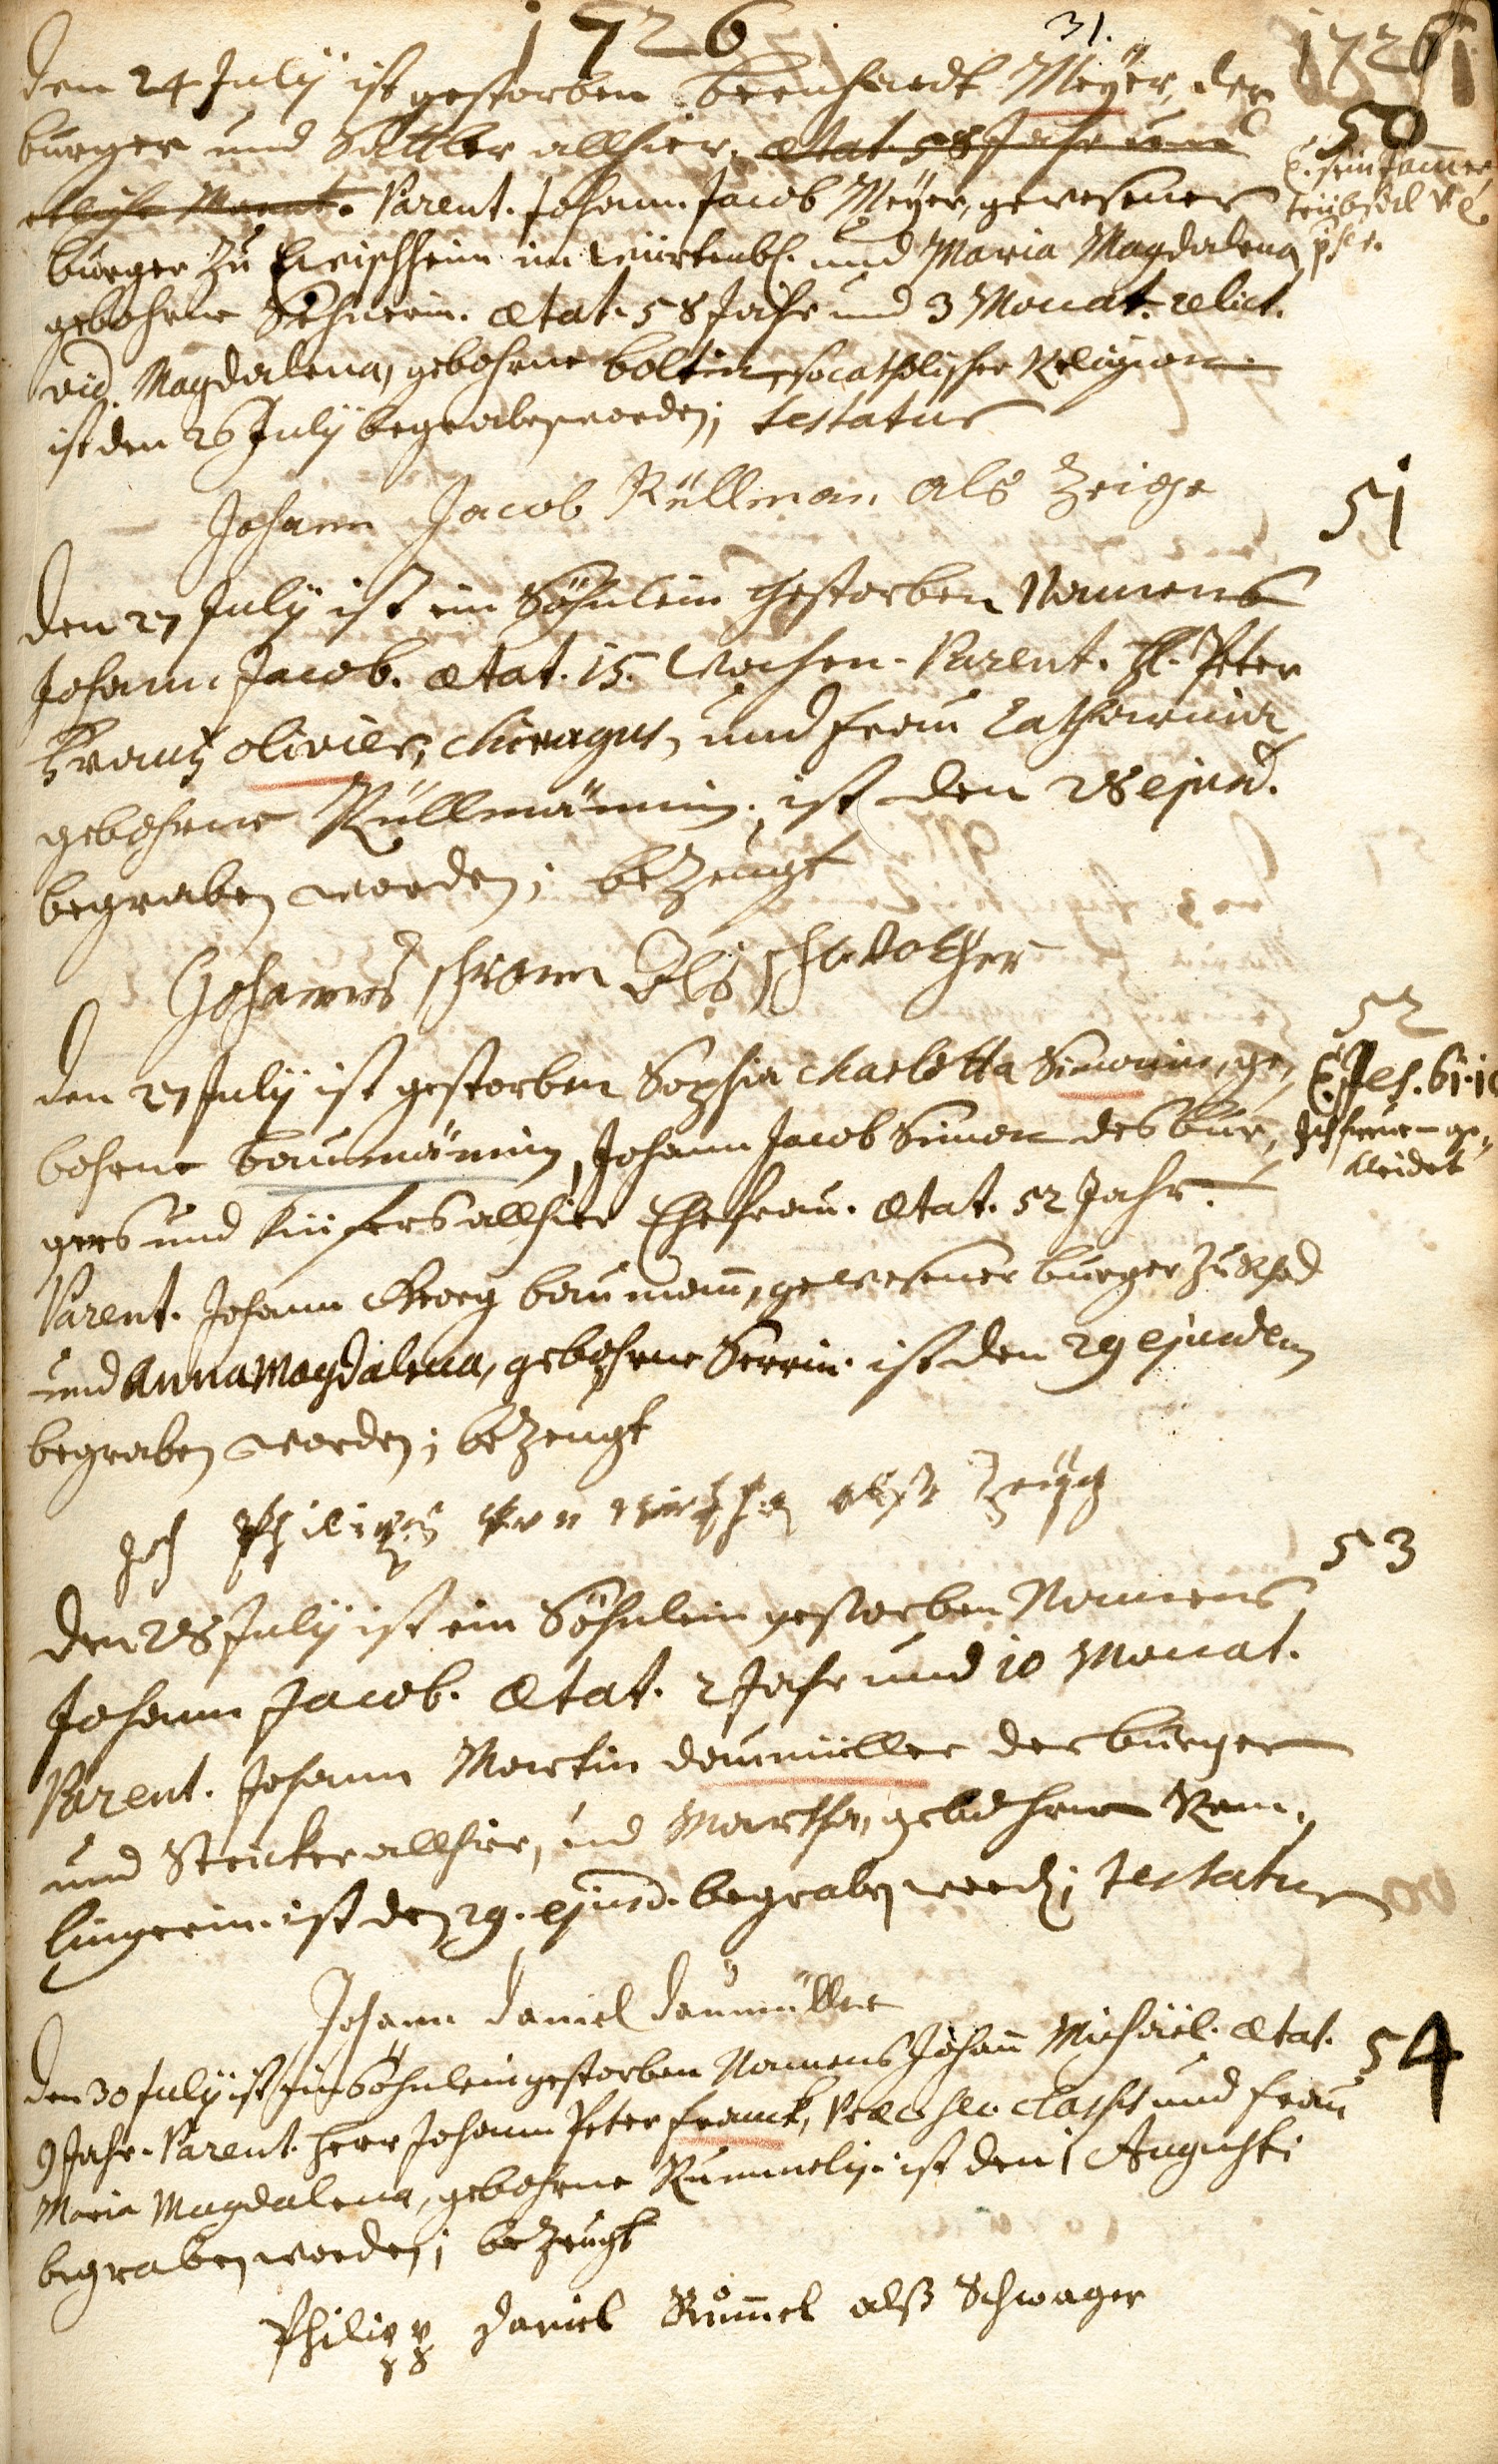 1726
31.
1726
den 24 July ist gestorben Bernhardt Meÿer, der
50
burger und Sattler allhier, ætat. 58 Jahr und
etliche Monat. Parent. Johann Jacob Meÿer, gewesener
burger zu im Würtenb. und Maria Magdalena
gebohrne ætat. 58 Jahr und 3 Monat. relict.
vid. Magdalena, gebohrne Boltin, so catholischer Religion
ist den 26 July begraben worden; testatur
Johann Jacob Rüllman als Zeige
51
den 27 July ist ein Söhnlein gestorben Namens
Johann Jacob. ætat. 15. Wochen. Parent. H. Peter
Frantz Olivier, Chirurgus, und Frau Catharina
gebohrne Rüllmännin, ist den 28 ejusd.
begraben worden; bezeugt
Johannes schramm Als
52
den 27 July ist gestorben Sophia Charlotta Simonin, ge-
Jes. 61.10
bohrne Baumännin, Johann Jacob Simon des bur-
gekleidet
gers und Küfers allhier Ehefrau. ætat. 52 Jahr.
Parent. Johann Georg Baumann, gewesener burger zu
und Anna Magdalena, gebohrne Serrin. ist den 29 ejusdem
begraben worden; bezeugt
Joh Philipps von alß Zeÿg
53
den 28 July ist ein Söhnlein gestorben Namens
Johann Jacob. ætat. 2 Jahr und 10 Monat.
Parent. Johann Martin Daumüller der burger
und Stricker allhier, und Martha, gebohrne Rem-
lingerin. ist den 29. ejusd. begraben word; testatur
Johann Daniel Daumüller
54
den 30 July ist ein Söhnlein gestorben Namens Johann Michäel. ætat.
9 Jahr. Parent. Herr Johann Peter Franck, Præc. Classis und Frau
Maria Magdalena, gebohrne Rummelin. ist den 1 Augusti
begraben worden; bezeugt
Philipp Daniel Rummel alß Schwager